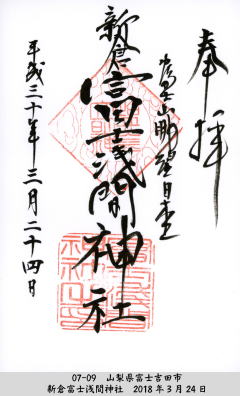 奉拝
富士山眺望日本一
新倉
富士浅間神社
平成三十年三月二十四日
07-09 山梨県富士吉田市
新倉富士浅間神社 2018年3月24日